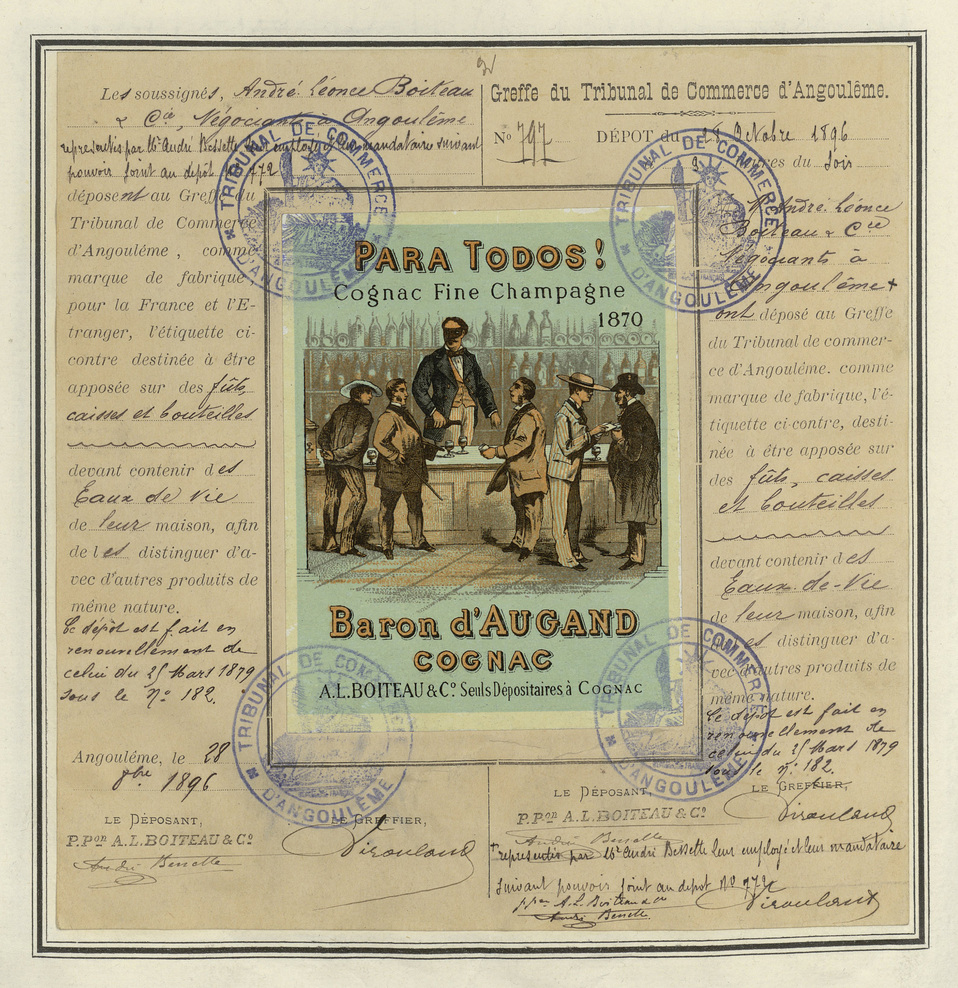 Les soussignés, André Léonce Boiteau
& Cie, Négociants à Angoulême
représentés par Mr André Bessette leur employé et leur mandataire suivant
pouvoir joint au dépôt No 772
déposent au Greffe du
Tribunal de Commerce
d'Angoulême, comme
marque de fabrique,
pour la France et l'E-
tranger, l'étiquette ci-
contre destinée à être
apposée sur des fûts,
caisses et bouteilles
devant contenir des
Eaux de Vie
de leur maison, afin
de les distinguer d'a-
vec d'autres produits de
même nature.
Ce dépôt est fait en
renouvellement de
celui du 25 Mars 1879
sous le No 182.
Angoulême, le 28
8bre 1896
LE DÉPOSANT,
P.Pon A.L. BOITEAU & Co
André Bessette
LE GREFFIER,
PARA TODOS!
Cognac Fine Champagne
1870
Baron d'AUGAND
COGNAC
A.L. BOITEAU & Co Seuls Dépositaires à COGNAC
Greffe du Tribunal de Commerce d'Angoulême.
No 797
DÉPOT du 28 Octobre 1896
heures du Soir
André Léonce
Boiteau & Cie
Négociants à
Angoulême +
ont déposé au Greffe
du Tribunal de commer-
ce d'Angoulême. comme
marque de fabrique, l'é-
tiquette ci-contre, desti-
née à être apposée sur
des fûts, caisses
et bouteilles
devant contenir des
Eaux-de-Vie
de leur maison, afin
de les distinguer d'a-
vec d'autres produits de
même nature.
Ce dépôt est fait en
renouvellement de
celui du 25 Mars 1879
sous le No 182.
LE DÉPOSANT,
P.Pon A.L. BOITEAU & Co
André Bessette
LE GREFFIER,
+ représentés par Mr André Bessette leur employé et leur mandataire
suivant pouvoir joint au dépôt No 772
p.pon A.L. Boiteau & Co
André Bessette
TRIBUNAL DE COMMERCE D'ANGOULÊME
TRIBUNAL DE COMMERCE D'ANGOULÊME
TRIBUNAL DE COMMERCE D'ANGOULÊME
TRIBUNAL DE COMMERCE D'ANGOULÊME